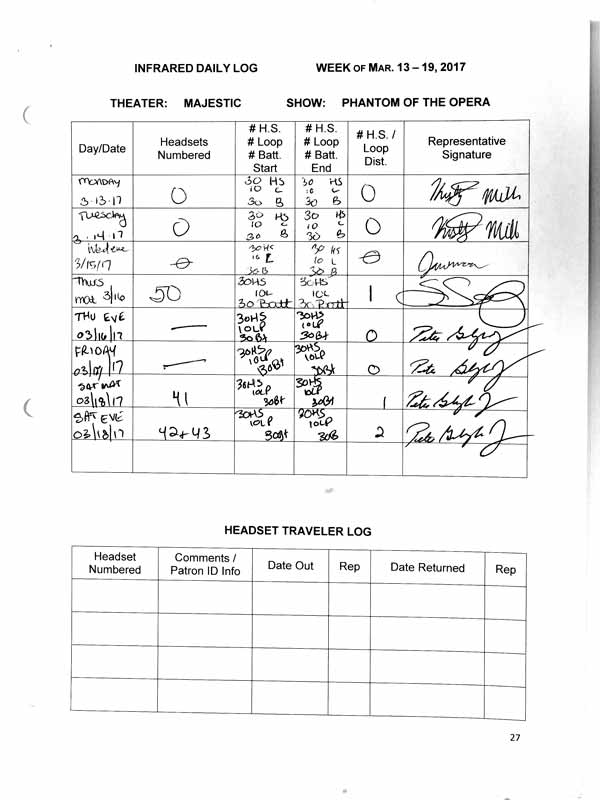 INFRARED DAILY LOG WEEK OF MAR. 13 – 19, 2017
THEATER: MAJESTIC SHOW: PHANTOM OF THE OPERA
Day/Date Headsets Numbered # H.S. # Loop # Batt. Start # H.S. # Loop # Batt. End # H.S. / Loop Dist. Representative Signature
MONDAY 3-13-17 0 30 HS 10 L 30 B 30 HS 10 L 30 B 0
TUESDAY 3.14.17 0 30 HS 10 L 30 B 30 HS 10 L 30 B 0
3/15/17 0 30HS 10 L 30B 30 HS 10 L 30 B 0
Thurs mat 3/16 50 30HS 10L 30 Batt 30HS 10L 30 Batt 1
THU EVE 03/16/17 — 30HS 10LP 30Bt 30HS 10LP 30Bt 0 Peter
FRIDAY — 30HS 10LP 30Bt 30HS 10LP 30Bt 0 Peter
SAT MAT 03/18/17 41 30HS 10LP 30Bt 30HS 10LP 30Bt 1 Peter
SAT EVE 03/18/17 42+43 30HS 10LP 30Bt 10LP 30B 2 Peter
HEADSET TRAVELER LOG
Headset Numbered Comments / Patron ID Info Date Out Rep Date Returned Rep
27